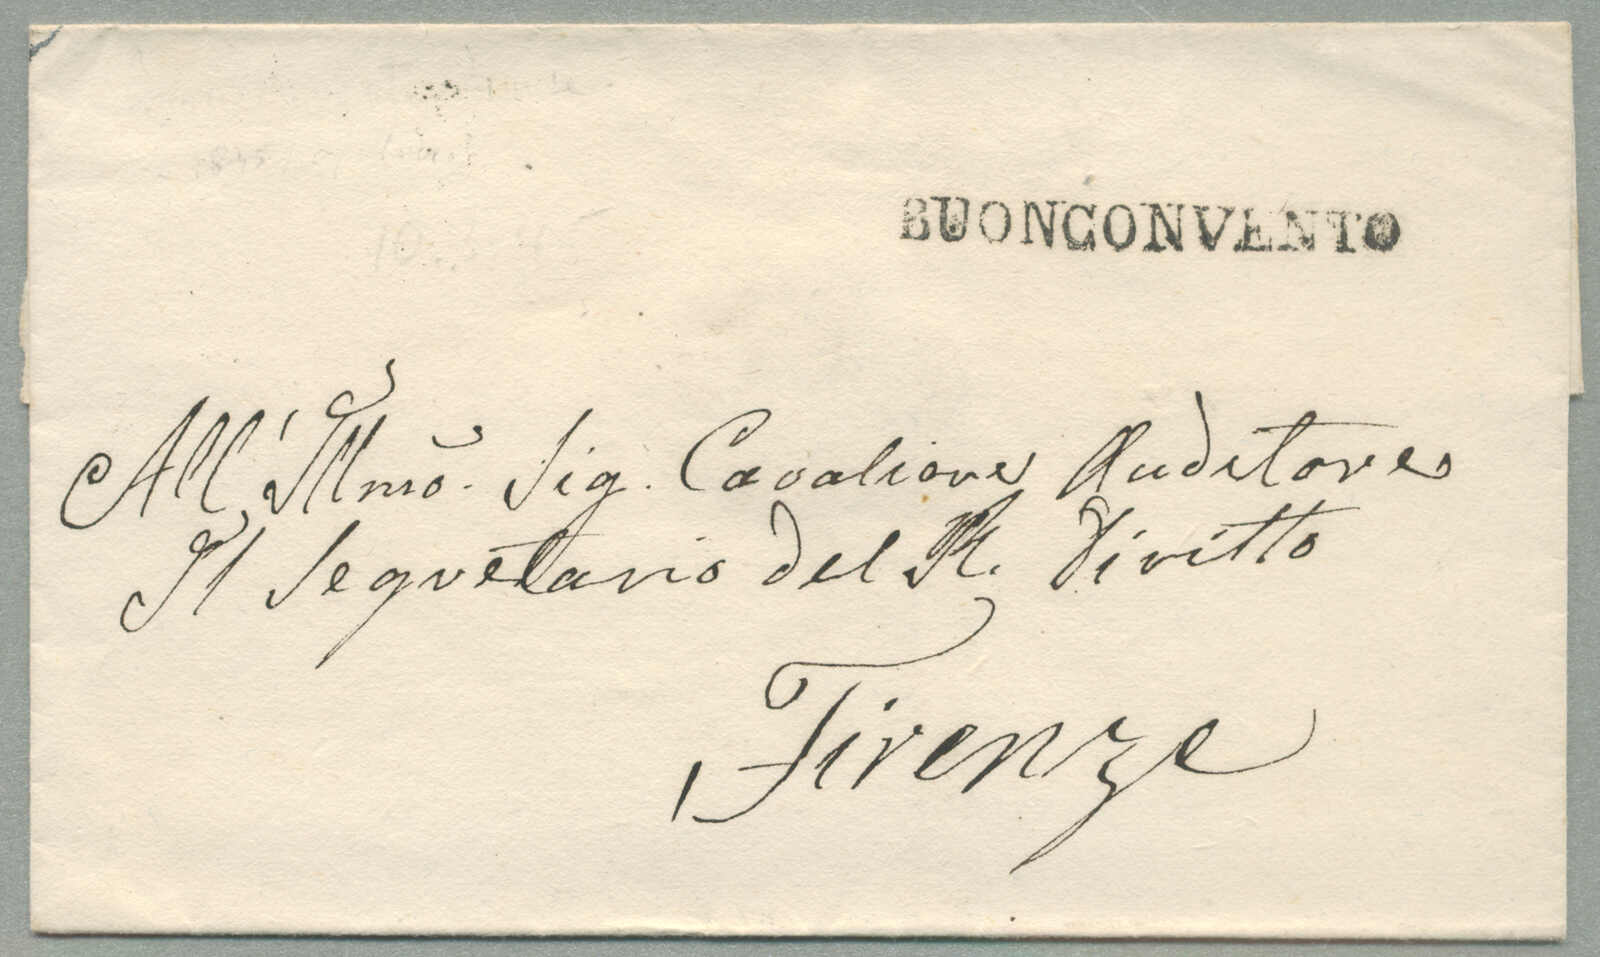 BUONCONVENTO
All' Illmo. Sig. Cavaliere Auditore
Il Segretario del R. Diritto
Firenze